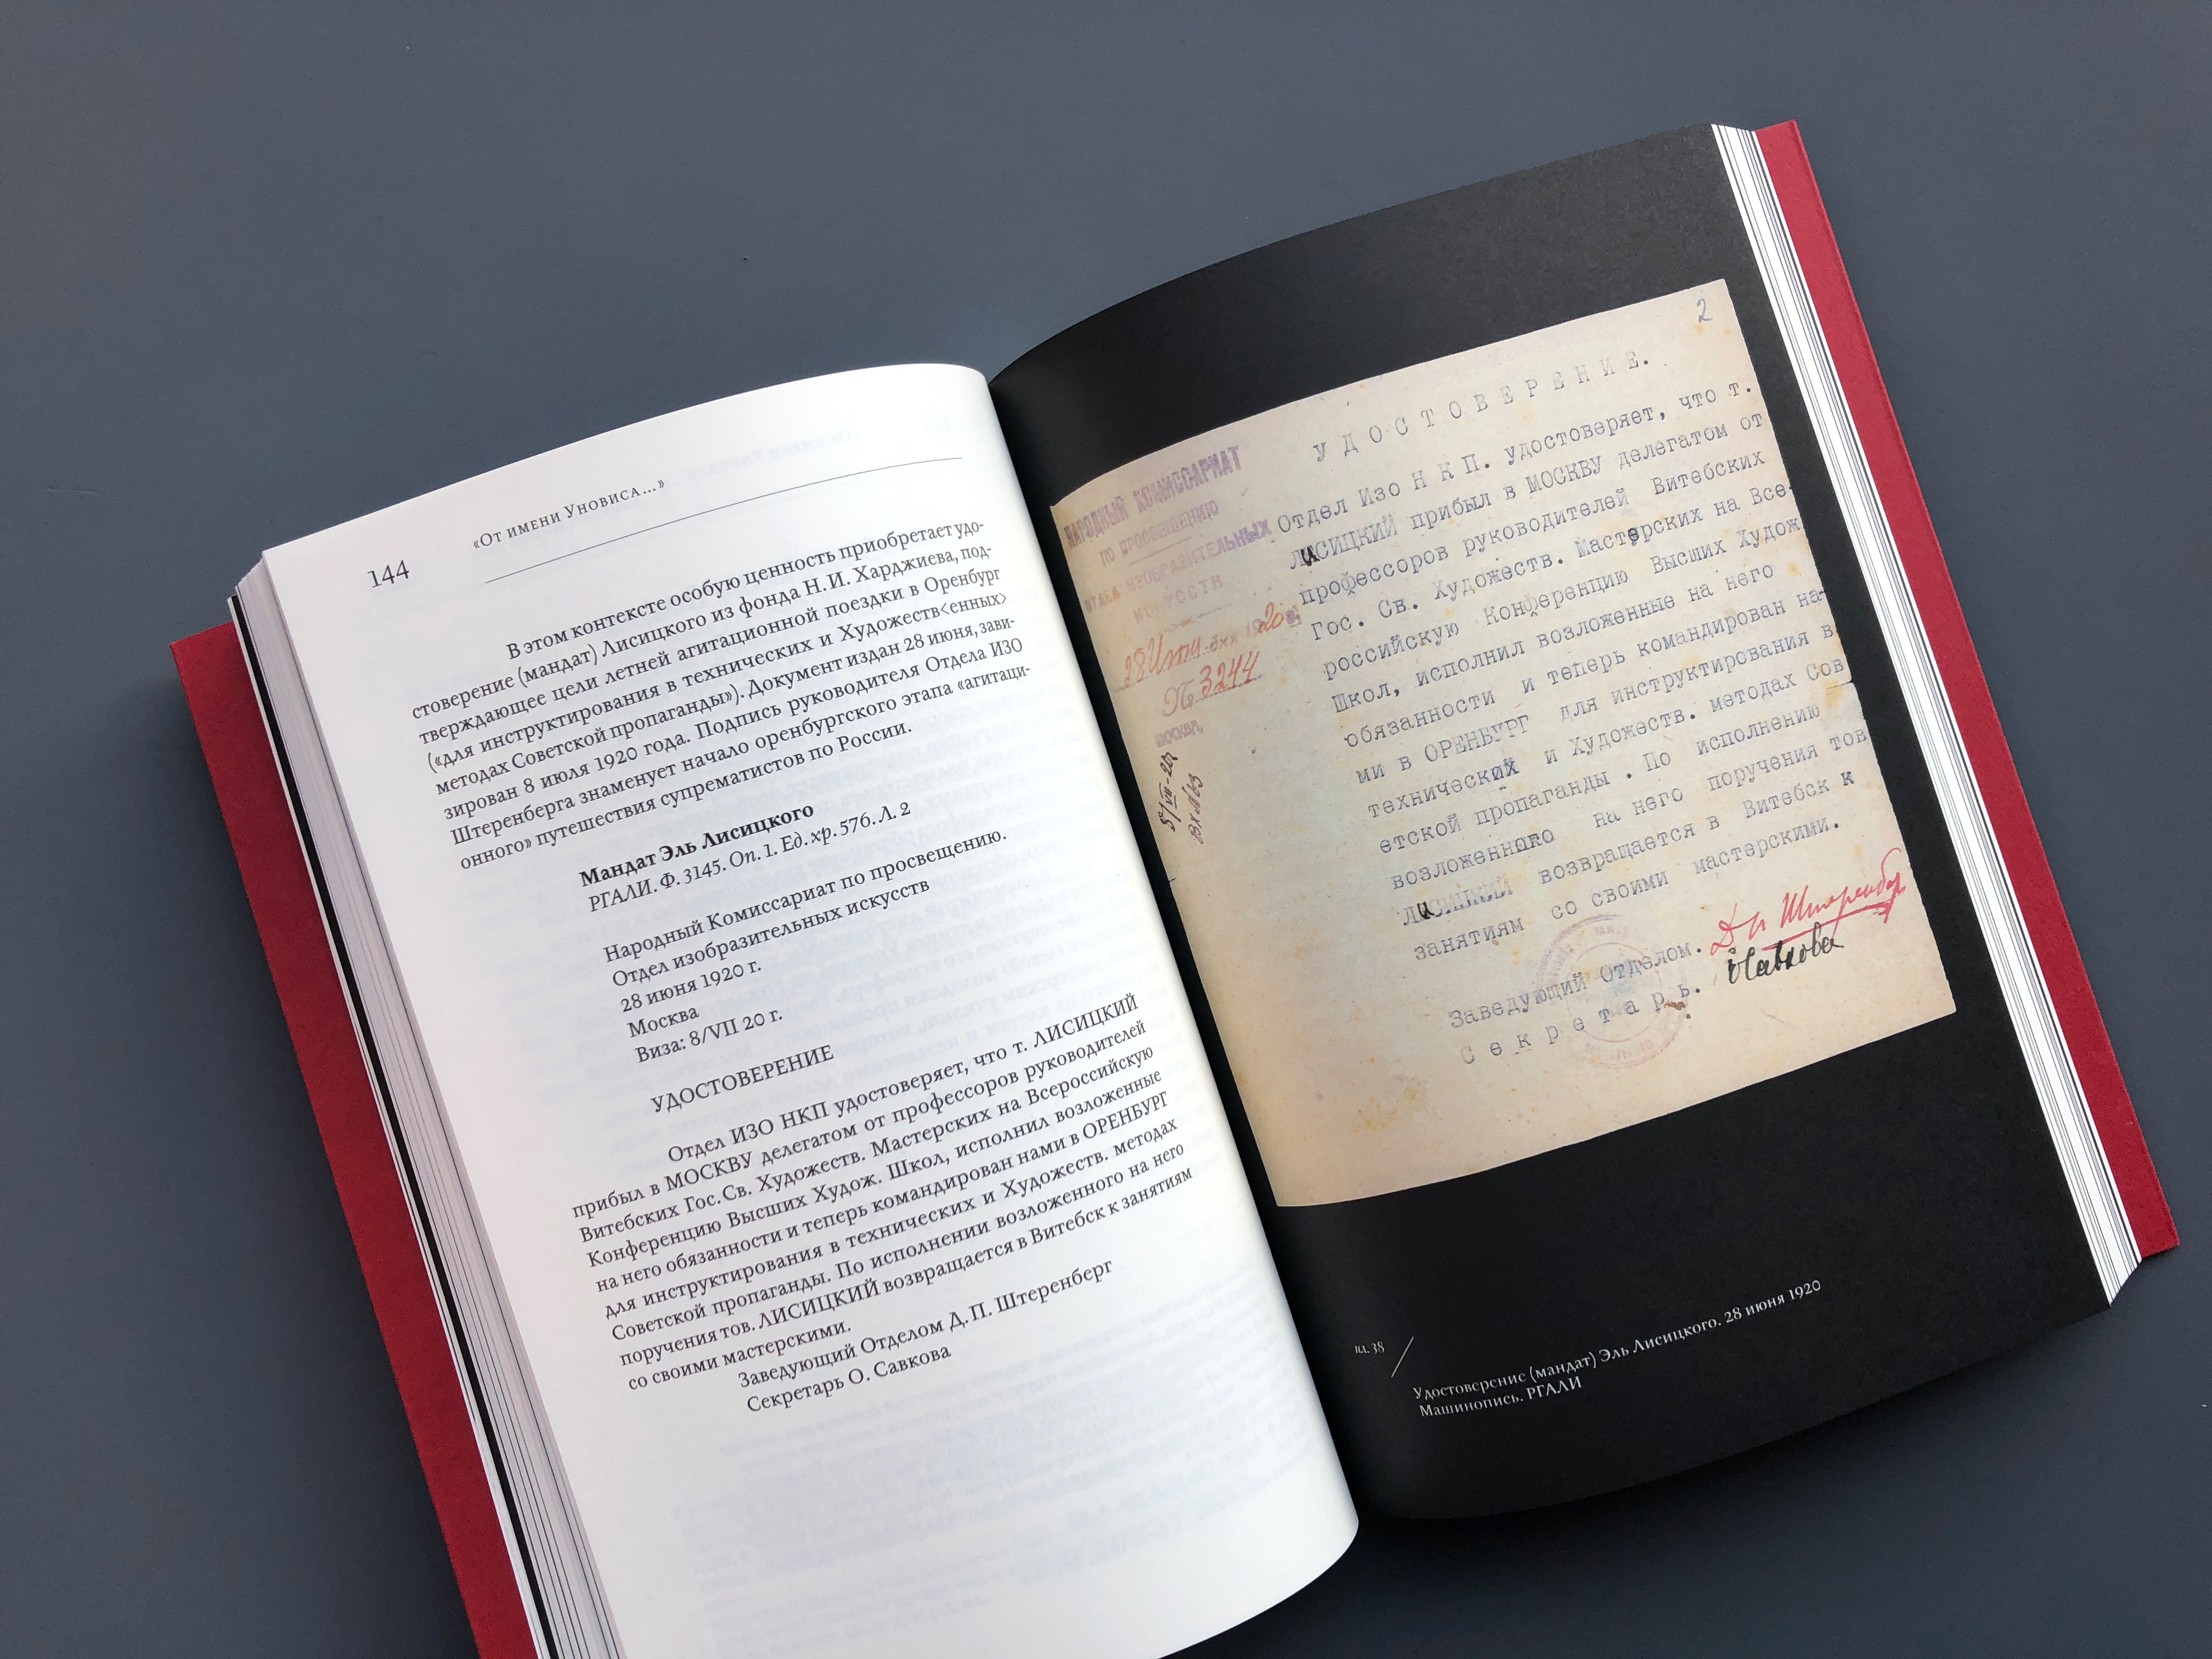 144
«От имени Уновиса...»
В этом контексте особую ценность приобретает удо-
стоверение (мандат) Лисицкого из фонда Н. И. Харджиева, под-
тверждающее цели летней агитационной поездки в Оренбург
(«для инструктирования в технических и Художеств<енных>
методах Советской пропаганды»). Документ издан 28 июня, зави-
зирован 8 июля 1920 года. Подпись руководителя Отдела ИЗО
Штеренберга знаменует начало оренбургского этапа «агитаци-
онного» путешествия супрематистов по России.
Мандат Эль Лисицкого
РГАЛИ. Ф. 3145. Оп. 1. Ед. хр. 576. Л. 2
Народный Комиссариат по просвещению.
Отдел изобразительных искусств
28 июня 1920 г.
Москва
Виза: 8/VII 20 г.
УДОСТОВЕРЕНИЕ
Отдел ИЗО НКП удостоверяет, что т. ЛИСИЦКИЙ
прибыл в МОСКВУ делегатом от профессоров руководителей
Витебских Гос. Св. Художеств. Мастерских на Всероссийскую
Конференцию Высших Худож. Школ, исполнил возложенные
на него обязанности и теперь командирован нами в ОРЕНБУРГ
для инструктирования в технических и Художеств. методах
Советской пропаганды. По исполнении возложенного на него
поручения тов. ЛИСИЦКИЙ возвращается в Витебск к занятиям
со своими мастерскими.
Заведующий Отделом Д. П. Штеренберг
Секретарь О. Савкова
2
НАРОДНЫЙ КОМИССАРИАТ
ПО ПРОСВЕЩЕНИЮ
ОТДЕЛ ИЗОБРАЗИТЕЛЬНЫХ
ИСКУССТВ.
№ 3244
МОСКВА,
8/VII-20
УДОСТОВЕРЕНИЕ.
Отдел Изо Н К П. удостоверяет, что т.
ЛИСИЦКИЙ прибыл в МОСКВУ делегатом от
профессоров руководителей Витебских
Гос. Св. Художеств. Мастерских на Все-
российскую Конференцию Высших Худож.
Школ, исполнил возложенные на него
обязанности и теперь командирован на-
ми в ОРЕНБУРГ для инструктирования в
технических и Художеств. методах Сов
етской пропаганды . По исполнению
возложенного на него поручения тов
ЛИСИЦКИЙ возвращается в Витебск к
занятиям со своими мастерскими.
Заведующий Отделом.
Секретарь.
Савкова
ил. 38
Удостоверение (мандат) Эль Лисицкого. 28 июня 1920
Машинопись. РГАЛИ